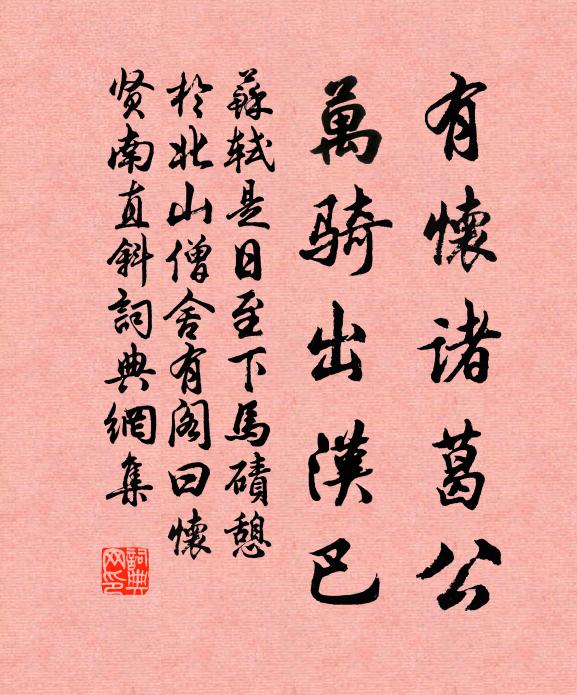 有懷諸葛公
萬騎出漢巴
蘇軾是日至下馬磧憩
於北山僧舍有閣曰懷
贤南直斜詞典網集
詞典网印